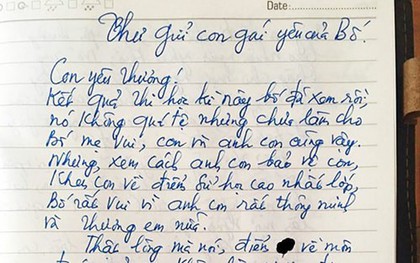 Date:
Thư gửi con gái yêu của Bố.
Con yêu thương!
Kết quả thi học kì này bố đã xem rồi,
nó không quá tệ nhưng chưa làm cho
Bố mẹ vui, con và anh con cũng vậy.
Nhưng, xem cách anh con bảo vệ con,
Khen con về điểm Sử học cao nhất lớp,
Bố rất vui vì anh con rất thông minh
và thương em nữa.
Thật lòng mà nói, điểm về môn